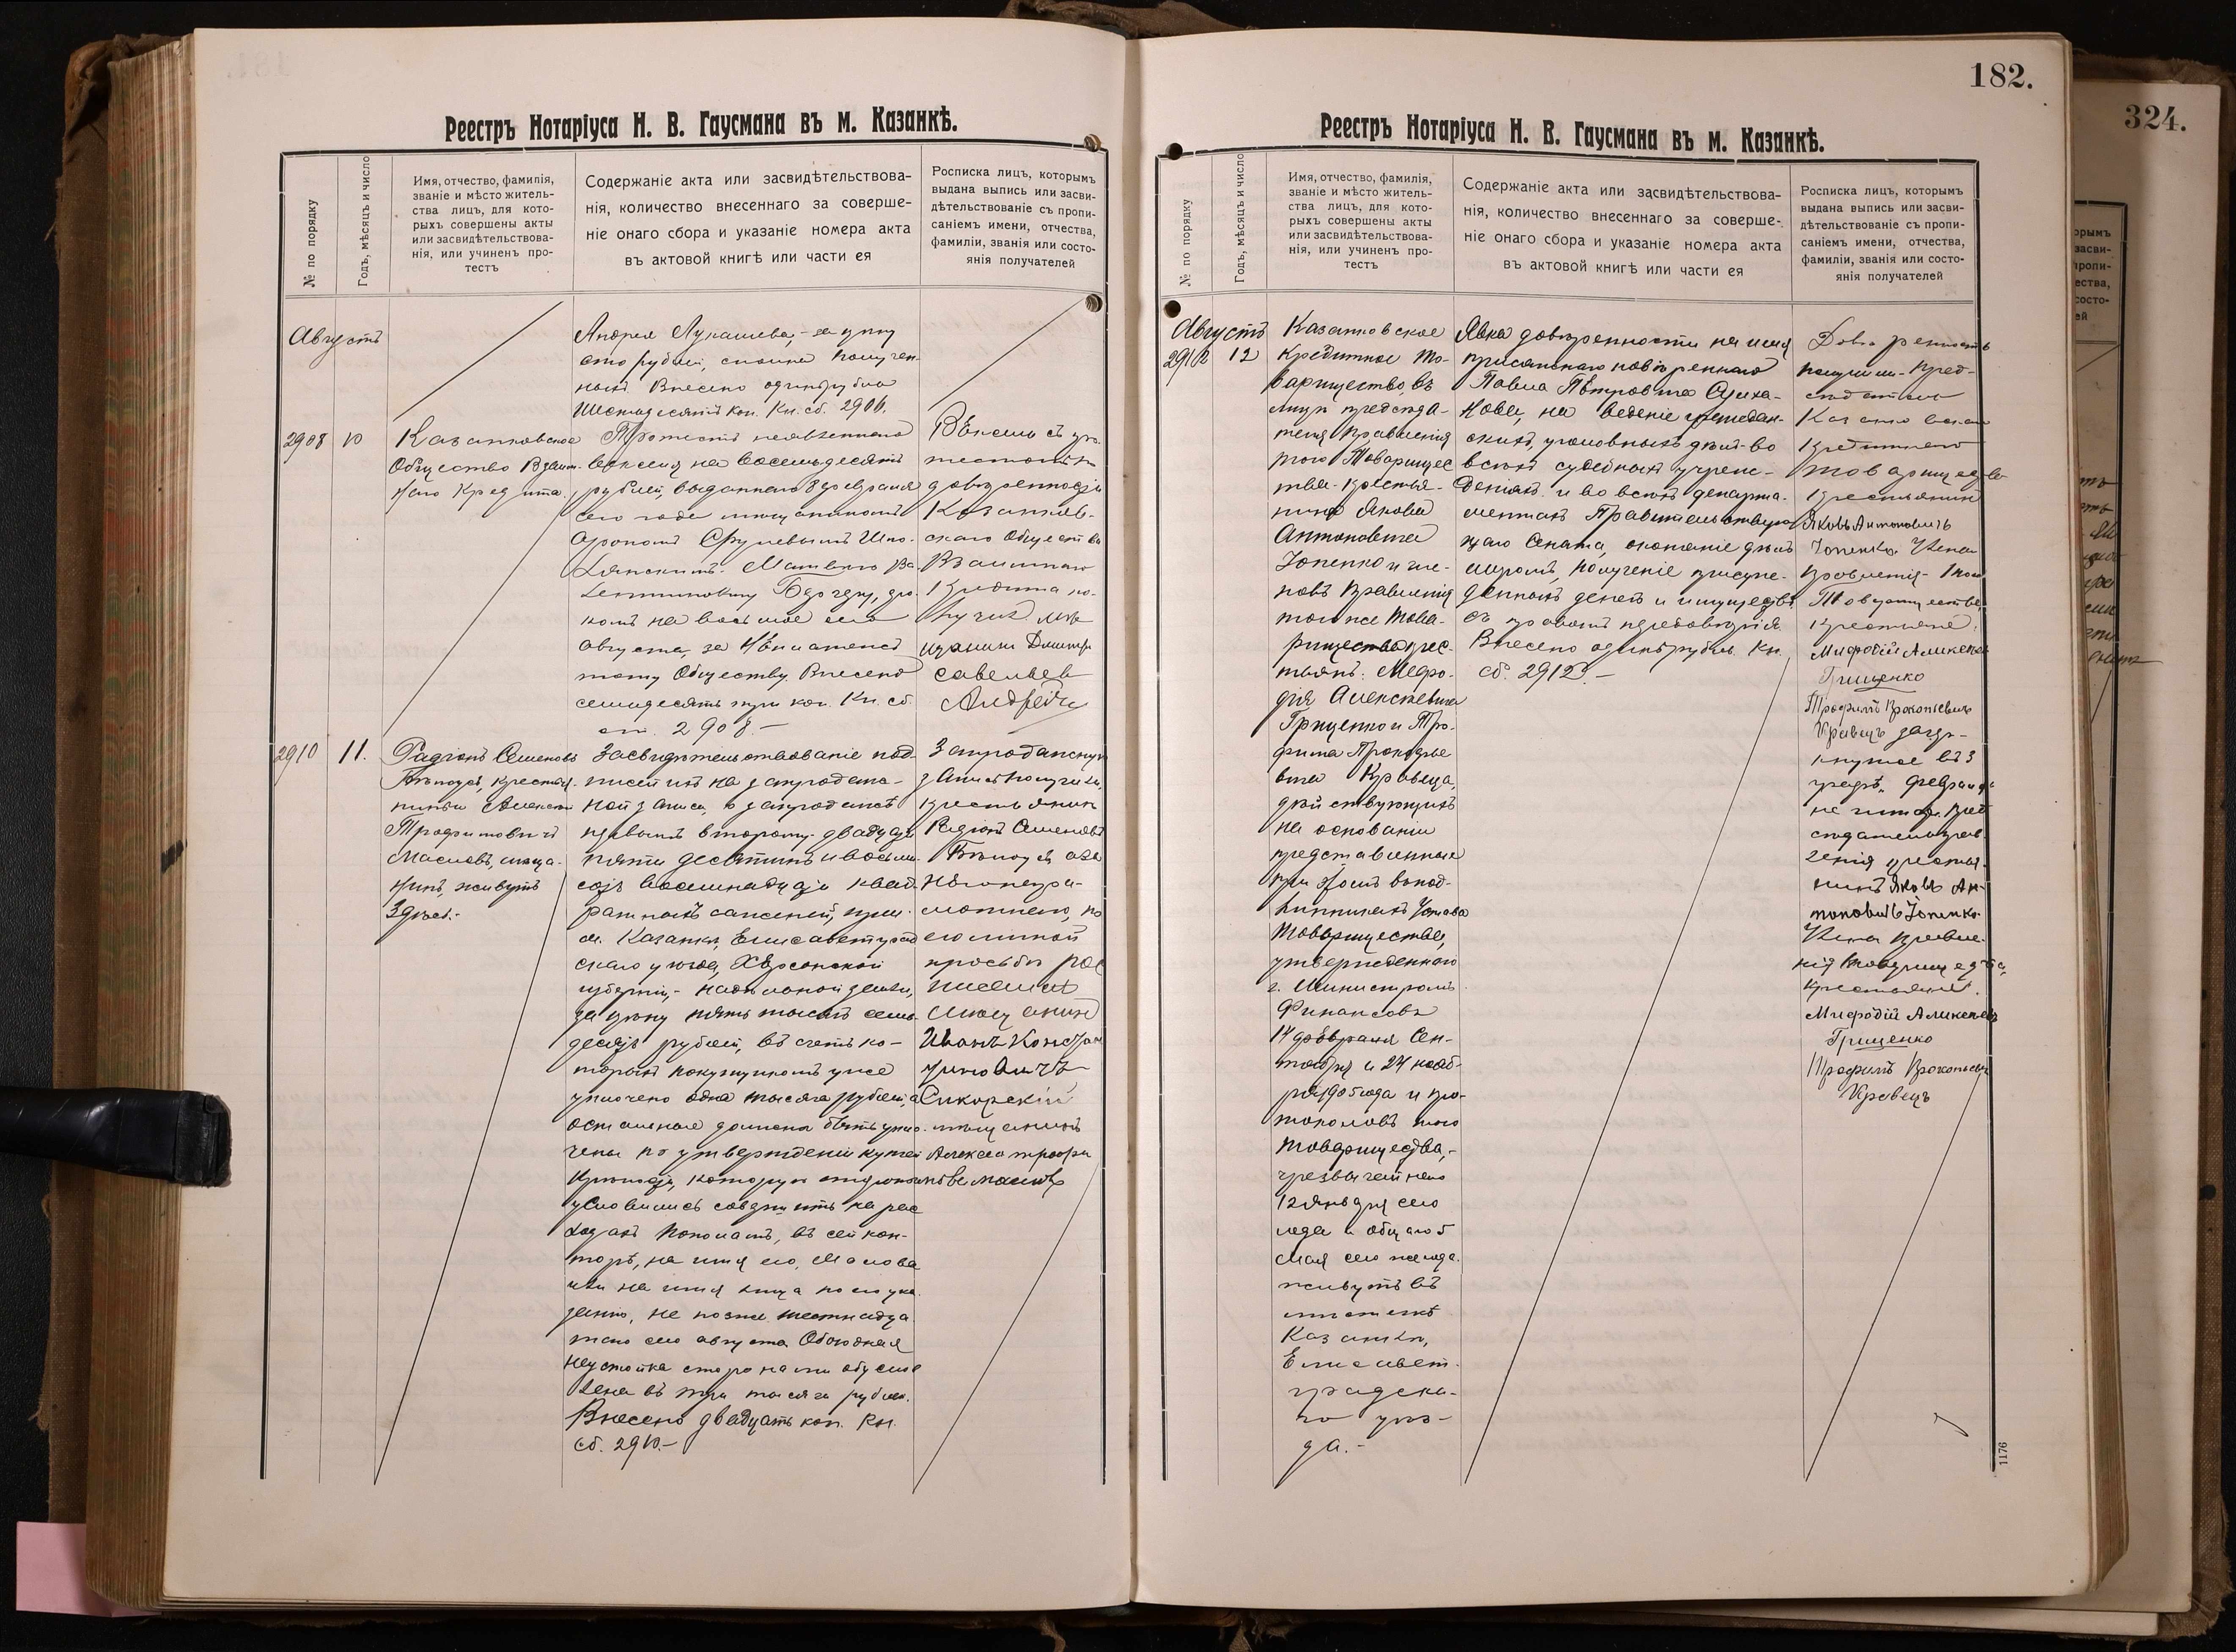 Реестръ Нотаріуса Н. В. Гаусмана въ м. Казанкѣ.
№ по порядку
Годъ, мѣсяцъ и число
Имя, отчество, фамилія,
званіе и мѣсто житель-
ства лицъ, для кото-
рыхъ совершены акты
или засвидѣтельствова-
нія, или учиненъ про-
тестъ
Содержаніе акта или засвидѣтельствова-
нія, количество внесеннаго за соверше-
ніе онаго сбора и указаніе номера акта
въ актовой книгѣ или части ея
Росписка лицъ, которымъ
выдана выпись или засви-
дѣтельствованіе съ пропи-
саніемъ имени, отчества,
фамиліи, званія или состо-
янія получателей
Августъ
Андрея Лукашева, за цѣну
сто рублей, сполна получен-
ныхъ Внесено одинъ рубль
шестьдесятъ коп. Кн. сб. 2906.
2908 10
Казанковское
Общество Взаим-
наго Кредита.
Протестъ
векселя на восемьдесятъ
рублей, выданнаго 8 февраля
сего года мѣщаниномъ
Срулевымъ Шпо-
лянскимъ
на восьмое сего
августа, за
тому Обществу. Внесено
семьдесятъ три коп. Кн. сб.
ст. 2908.-
Вексель съ про-
тестомъ
Казанков-
скаго Общества
Взаимнаго
Кредита по-
лучилъ мѣ-
щанинъ Дмитрій
Савельев
2910 11.
Радіонъ Семеновъ
Бѣлоусъ, крестья-
нинъ и Алексѣй
Трофимовичъ
Масловъ, мѣща-
нинъ, живутъ
здѣсь.-
Засвидѣтельствованіе под-
писей ихъ на запродаж-
ной записи, о запродажѣ
первымъ второму двадцати
пяти десятинъ и восьми-
сотъ восемнадцати квад-
ратныхъ саженей, при
м. Казанкѣ, Елисаветград-
скаго уѣзда, Херсонской
губерніи,- надѣльной земли,
за цѣну пять тысячъ семь-
десятъ рублей, въ счетъ ко-
торыхъ покупщикомъ уже
уплочено одна тысяча рублей, а
остальные должны быть упло-
чены по утвержденіи купчей
крѣпости, которую стороны
условились совершить на рас-
ходахъ пополамъ, въ сей кон-
торѣ, на имя его, Маслова
или на имя лица по его ука-
занію, не позже шестнадца-
таго сего августа Обоюдная
неустойка сторонами обуслов-
лена въ три тысячи рублей.
Внесено двадцать коп. Кн.
сб. 2910.-
Запродажную
запись получили
крестьянинъ
Радіонъ Семеновъ
Бѣлоусъ, а за
него неграмотнаго, по
его личной
просьбѣ рос-
писался
мѣщанинъ
Иванъ Констан-
тиновичъ
Сикорскій
мѣщанинъ
Алексей трофи
мовъ масловъ
182.
Реестръ Нотаріуса Н. В. Гаусмана въ м. Казанкѣ.
№ по порядку
Годъ, мѣсяцъ и число
Имя, отчество, фамилія,
званіе и мѣсто житель-
ства лицъ, для кото-
рыхъ совершены акты
или засвидѣтельствова-
нія, или учиненъ про-
тестъ
Содержаніе акта или засвидѣтельствова-
нія, количество внесеннаго за соверше-
ніе онаго сбора и указаніе номера акта
въ актовой книгѣ или части ея
Росписка лицъ, которымъ
выдана выпись или засви-
дѣтельствованіе съ пропи-
саніемъ имени, отчества,
фамиліи, званія или состо-
янія получателей
Августъ
2912 12
Казанковское
Кредитное То-
варищество, въ
лицѣ предсѣда-
теля Правленія
того Товарищес-
тва- крестья-
нина Якова
Антоновича
Лопенко и чле-
новъ Правленія
того же Това-
рищества крес-
тьянъ: Мефо-
дія Алексѣевича
Гриценко и Тро-
фима Прокофье-
вича Кравеца,
дѣйствующихъ
на основаніи
представленныхъ
при этомъ въ под-
линникахъ Устава
Товарищества,
утвержденнаго
г. Министромъ
Финансовъ
14 февраля Сен-
тября и 24 нояб-
ря 1905 года и про-
токоловъ того
товарищества,-
чрезвычайнаго
12 января сего
года и общаго 5
мая сего же года.
живутъ въ
мѣстечкѣ
Казанкѣ,
Елисавет-
градска-
го уѣз-
да.-
Явка довѣренности на имя
присяжнаго повѣреннаго
Павла Петровича
на веденіе граждан-
скихъ, уголовныхъ дѣлъ- во
всѣхъ судебныхъ учреж-
деніяхъ и во всѣхъ департа-
ментахъ Правительствую-
щаго Сената, окончаніе дѣлъ
миромъ, полученіе присуж-
денныхъ денегъ и имуществъ
съ правомъ передовѣрія.
Внесено одинъ рубль. Кн.
сб. 2912.-
Довѣренность
получили- Пред-
сѣдатель
Казанковскаго
Кредитнаго
товарищества
крестьянинъ
Яковъ Антоновичъ
Лопенко Члены
правленія- того
Товарищества,
крестьяне:
Мифодій Аликсѣев
Гриценко
Трофимъ Прокопьевичъ
Кравецъ зачер-
кнутое въ 3
графѣ „февраля"
не читать. Пред-
сѣдатель прав-
ленія крестья-
нинъ Яковъ Ан-
тоновичъ Лопенко.
Члены правле-
нія товарищества,
крестьяне:
Мифодій Аликсѣевъ
Гриценко
Трофимъ Прокопьевичъ
Кравецъ
1176
324.